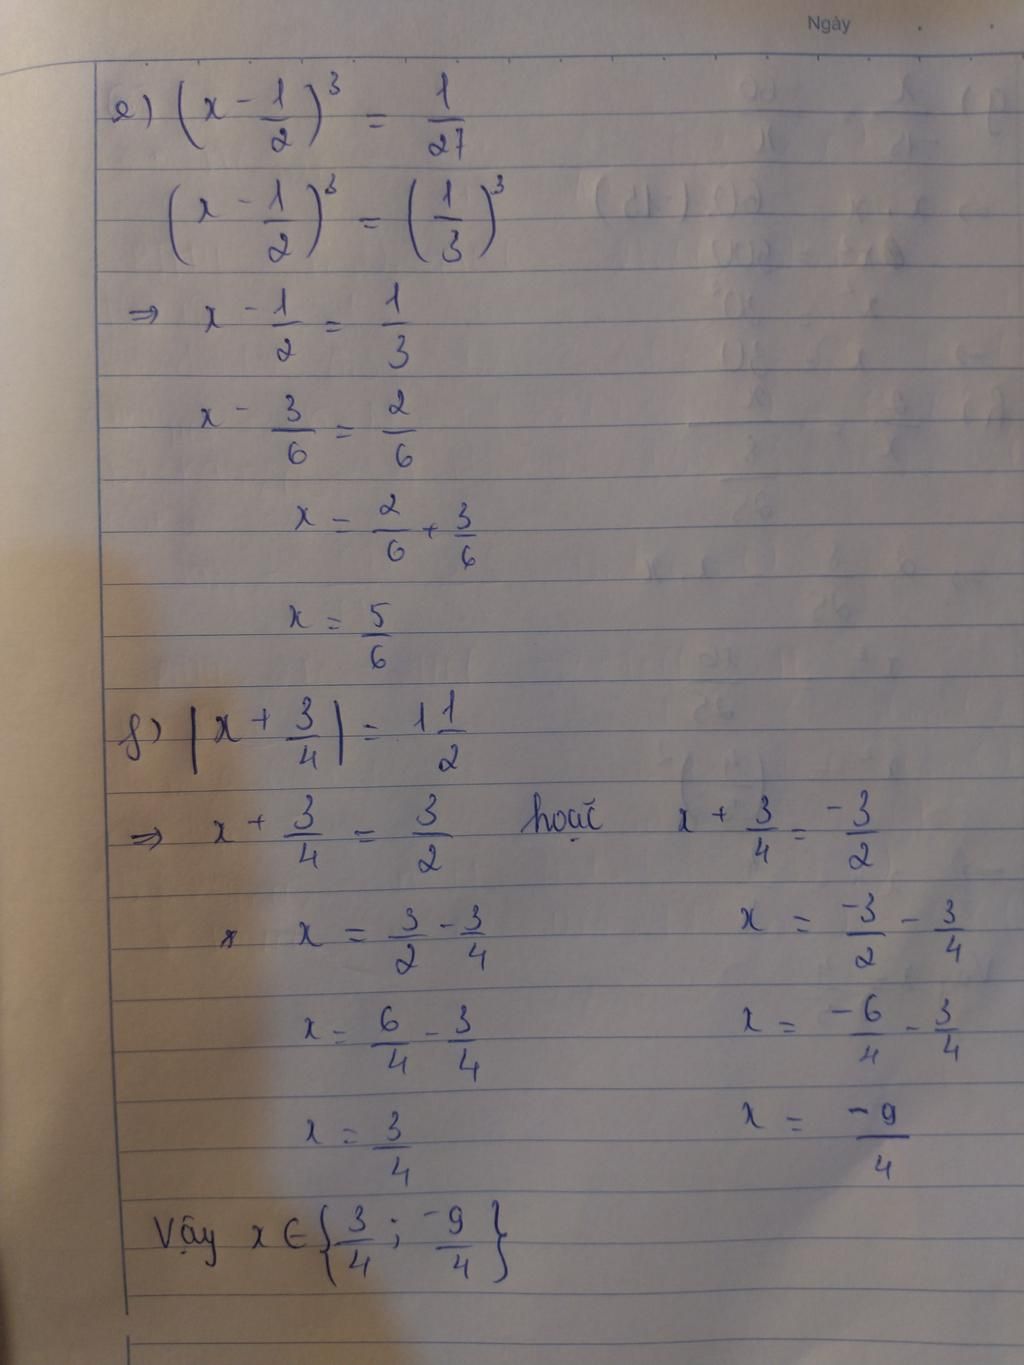 Ngày
e) (x - 1/2)³ = 1/27
(x - 1/2)³ = (1/3)³
⇒ x - 1/2 = 1/3
x - 3/6 = 2/6
x = 2/6 + 3/6
x = 5/6
f) |x + 3/4| = 1 1/2
⇒ x + 3/4 = 3/2 hoặc x + 3/4 = -3/2
* x = 3/2 - 3/4 x = -3/2 - 3/4
x = 6/4 - 3/4 x = -6/4 - 3/4
x = 3/4 x = -9/4
Vậy x ∈ {3/4 ; -9/4}